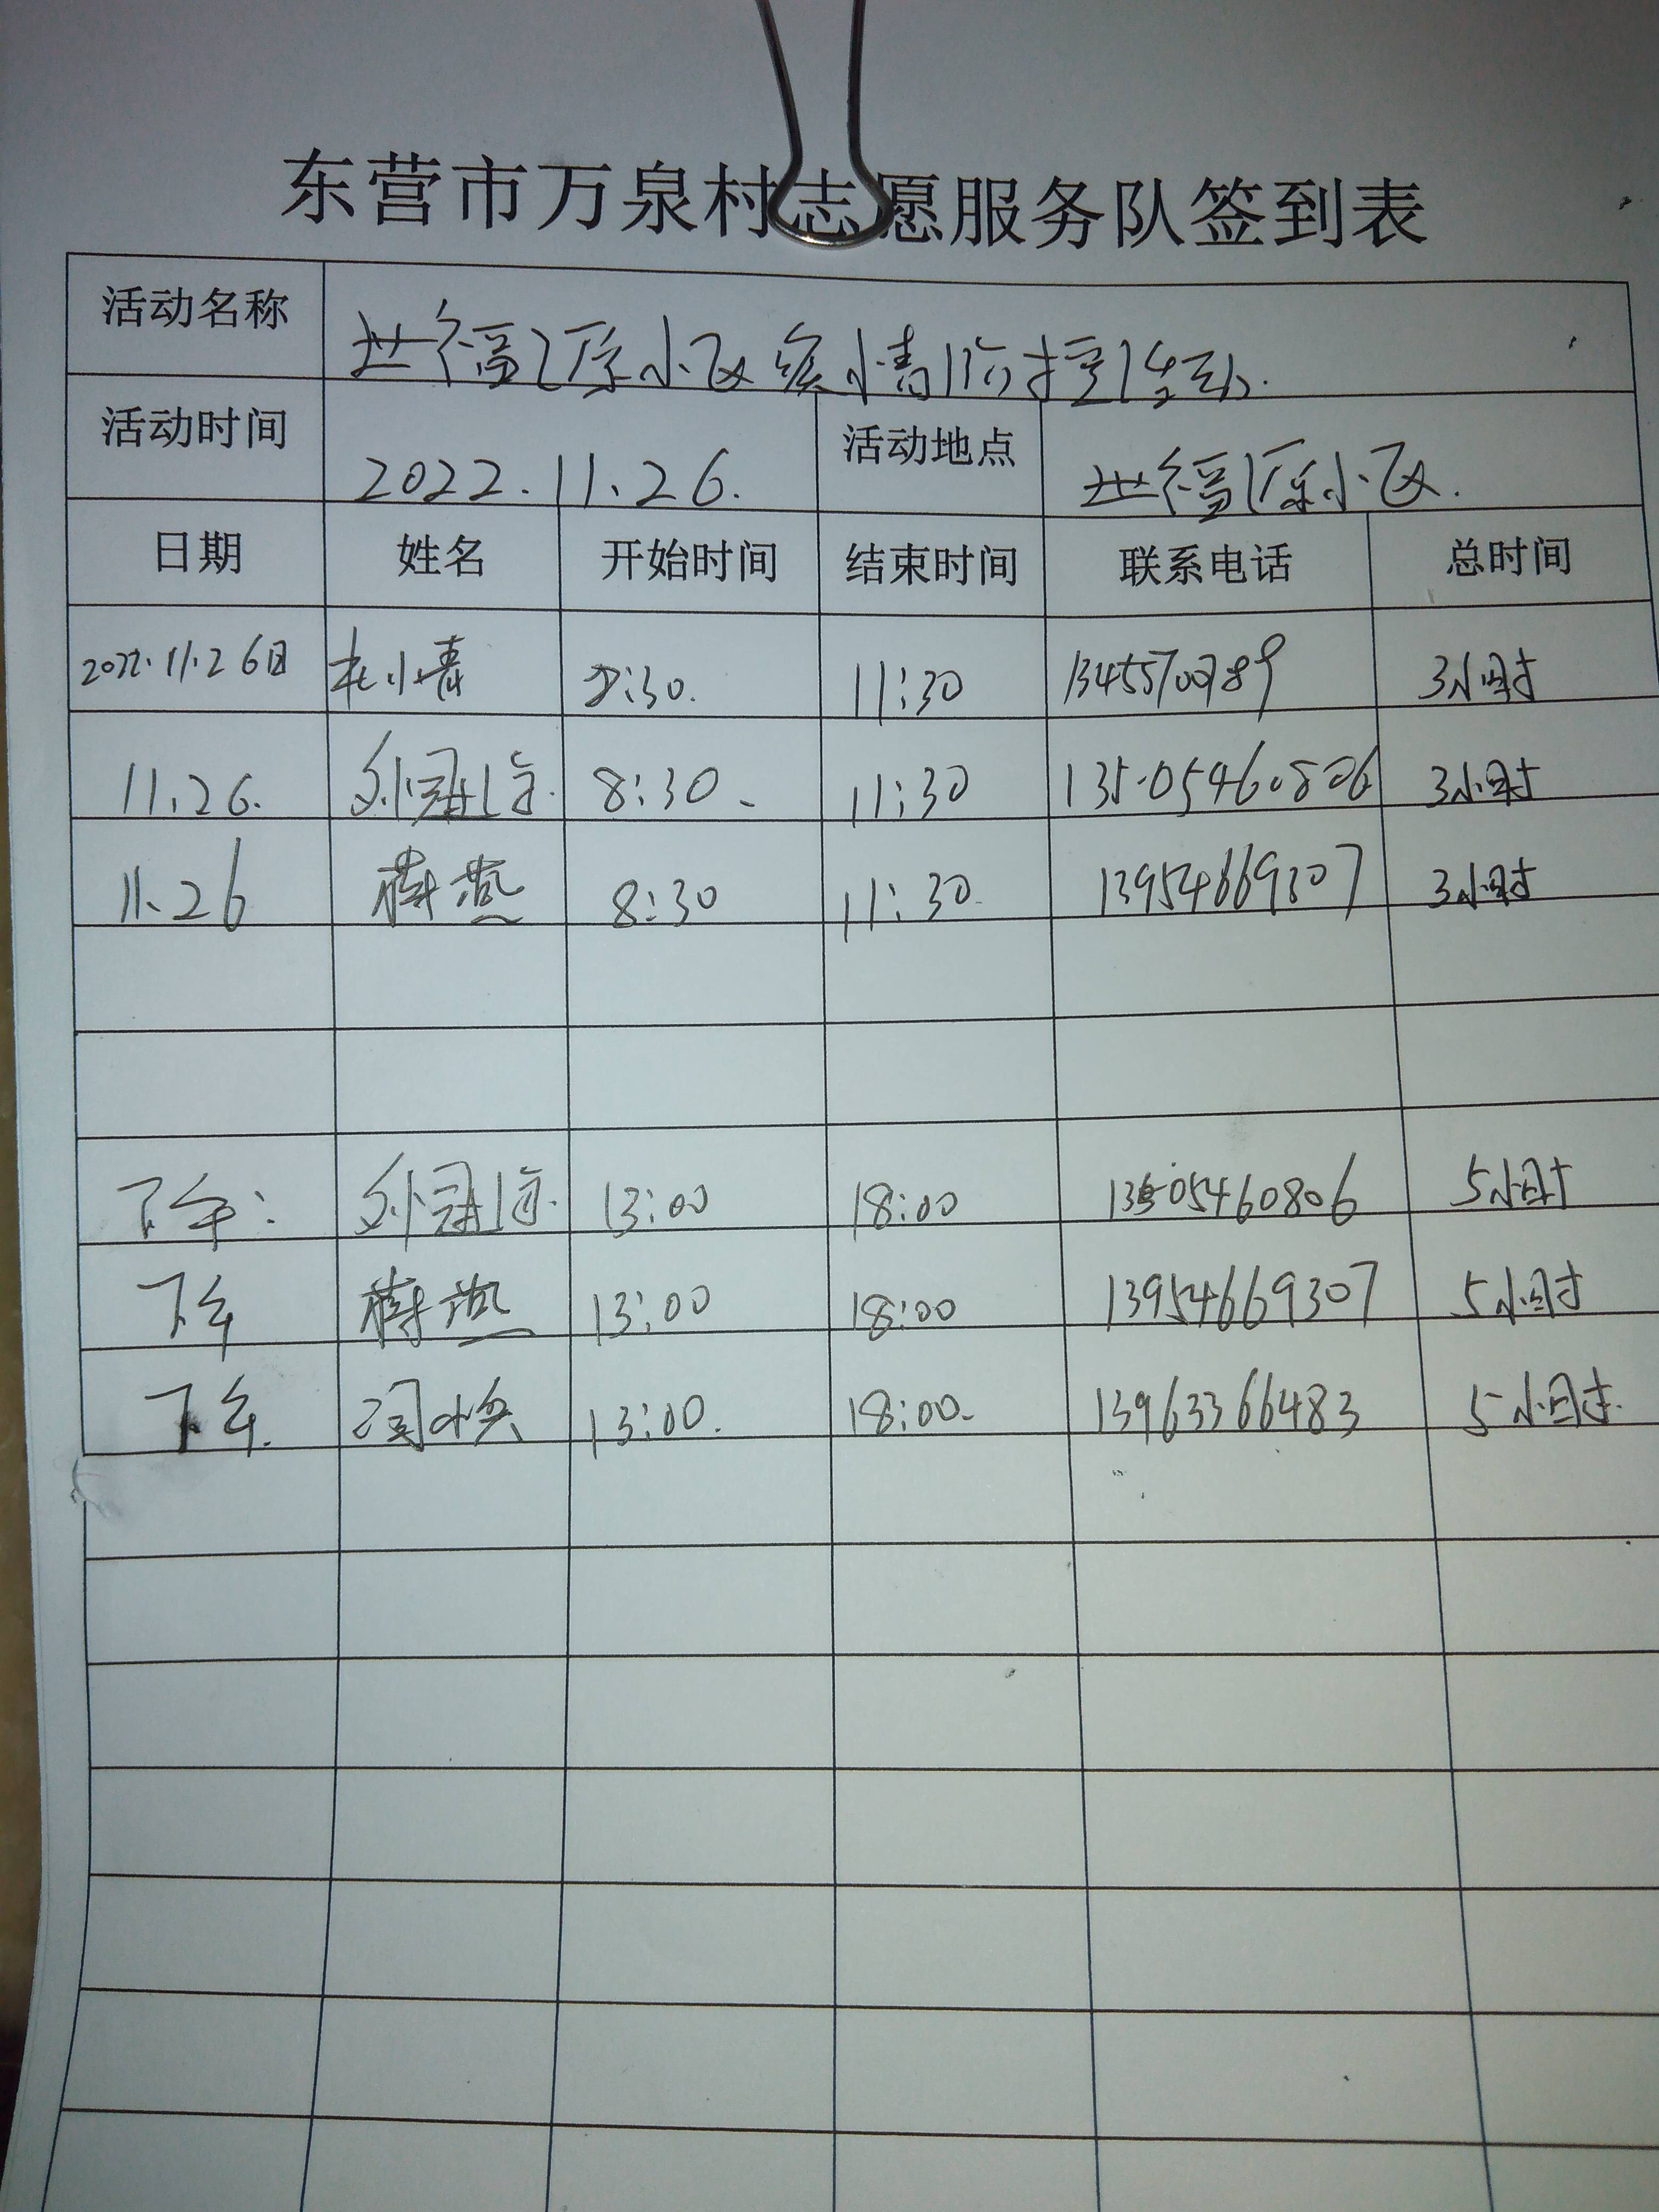 东营市万泉村志愿服务队签到表
活动名称 世福源小区疫情防控活动.
活动时间 2022.11.26. 活动地点 世福源小区.
日期 姓名 开始时间 结束时间 联系电话 总时间
2022.11.26日 杜小青 :30. 11:30 3小时
11.26. 刘冠 8:30 11:30 13505460806 3小时
11.26 燕 8:30 11:30 13954669307 3小时
下午: 刘冠 13:00 18:00 13505460806 5小时
下午 燕 13:00 18:00 13954669307 5小时
下午. 13:00. 18:00 13963366483 5小时.